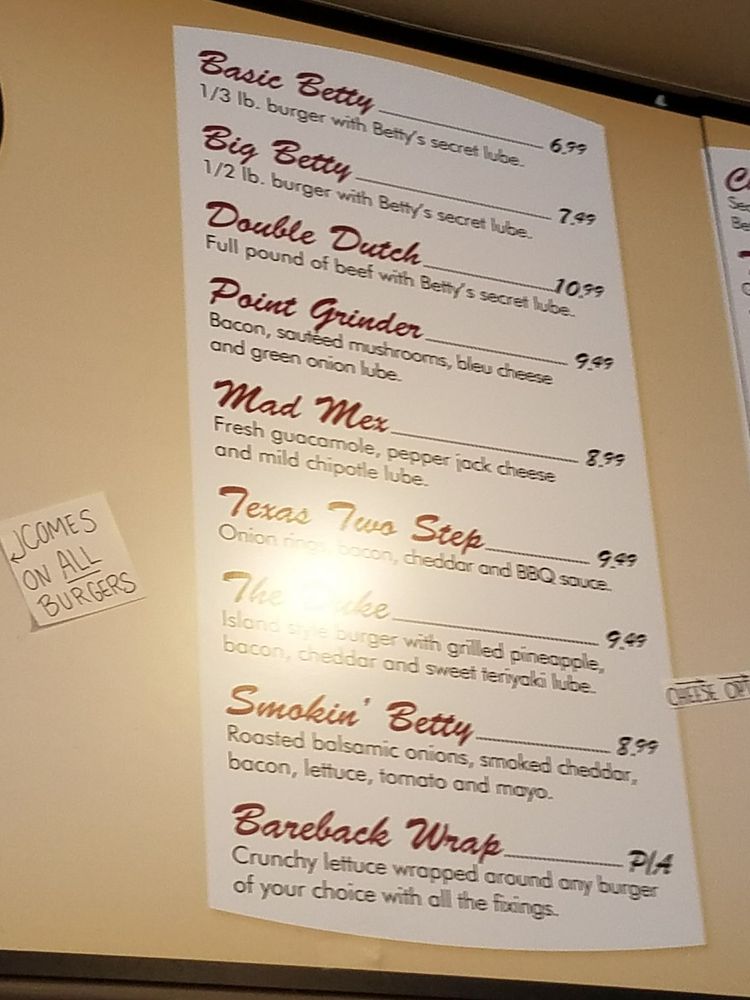 Basic Betty 6.99
1/3 lb. burger with Betty's secret lube.
Big Betty 7.49
1/2 lb. burger with Betty's secret lube.
Double Dutch 10.99
Full pound of beef with Betty's secret lube.
Point Grinder 9.49
Bacon, sautéed mushrooms, bleu cheese
and green onion lube.
Mad Mex 8.99
Fresh guacamole, pepper jack cheese
and mild chipotle lube.
Texas Two Step 9.49
Onion rings, bacon, cheddar and BBQ sauce.
The 9.49
Island style burger with grilled pineapple,
bacon, cheddar and sweet teriyaki lube.
Smokin' Betty 8.99
Roasted balsamic onions, smoked cheddar,
bacon, lettuce, tomato and mayo.
Bareback Wrap P/A
Crunchy lettuce wrapped around any burger
of your choice with all the fixings.
COMES
ON ALL
BURGERS
CHEESE